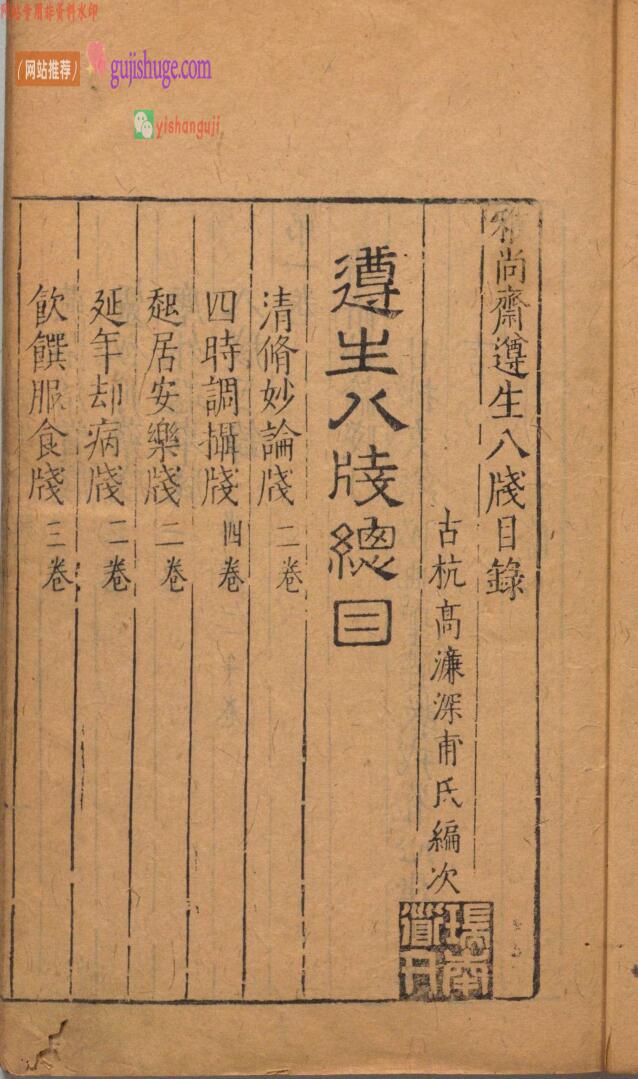 网站专用非资料水印
（网站推荐）
gujishuge.com
yishanguji
雅尚齋遵生八牋目錄
古杭高濂深甫氏編次
遵生八牋總目
清脩妙論牋二卷
四時調攝牋四卷
起居安樂牋二卷
延年却病牋二卷
飲饌服食牋三卷